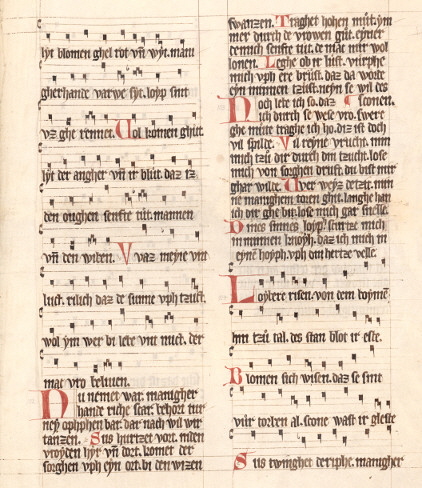 lyt blomen ghel rot vn̄ wyt. mani
gherhande varwe syt. loyp sint
vz ghe rennet. Uol komen ghut.
lyt der angher vn̄ ir blut. daz tz
den oughen senfte tut. mannen
vn̄ den wiben. V vaz meyne vnt
lust. rilich daz de sunne vph tzuct.
wol ym wer bi lebe vnt nuct. der
mac vro beliuen.
Nu nemet war. manigher
hande riche scar. behozt tur
ney ophphen bar. dar nach wil wir
tanzen. Sus hurtzet vort. niden
vroyden hyr vn̄ dort. komet der
sorghen vph eyn ort. bi den wizen
swanzen. Traghet hohen mut. ym
mer durch de vrowen gut. ey wer
dennich senfte tut. de mac mir wol
lonen. Leghe ob ir bist. wirphe
mich vph ere brust. daz da woste
eyn minnen tzust. ney n se wil des
Noch lebe ich so. daz sconen.
ich durch se wese vro. swere
ghe mute traghe ich ho. diz ist doch
vil spilde. Vil reyne vrucht. nim
mich tzu dir durch din tzucht. lose
mich von sorghen drust. du bist mir
ghar wilde. Auer weyz de tzit. nim
ne manighem toren ghit. langhe han
ich dir ghe bit. lose mich gar snelle.
Dines sinnes loyph. scurtze mich
in minnen knoyh. daz ich mich in
eyne hoyph. vph din hertze velle.
Loybere risen. von dem boyme
hin tzu tal. des stan blot ir este.
Blomen sich wisen. daz se sint
vur torben al. scone wast ir gleste
Sus twinghet der riphe. manigher